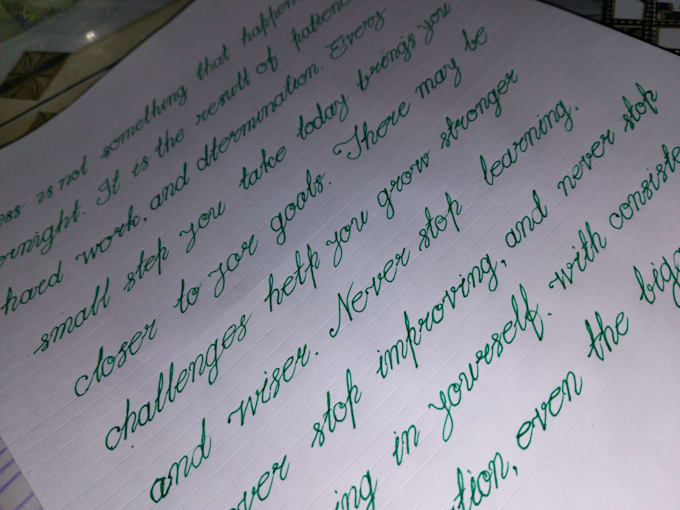 ess is not something that happen
ernight. It is the result of patienc
hard work, and dtermination. Every
small step you take today brings you
closer to yor goals. There may be
challenges help you grow stronger
and wiser. Never stop learning,
ver stop improving, and never stop
ing in yourself. with consiste
tion, even the bigg